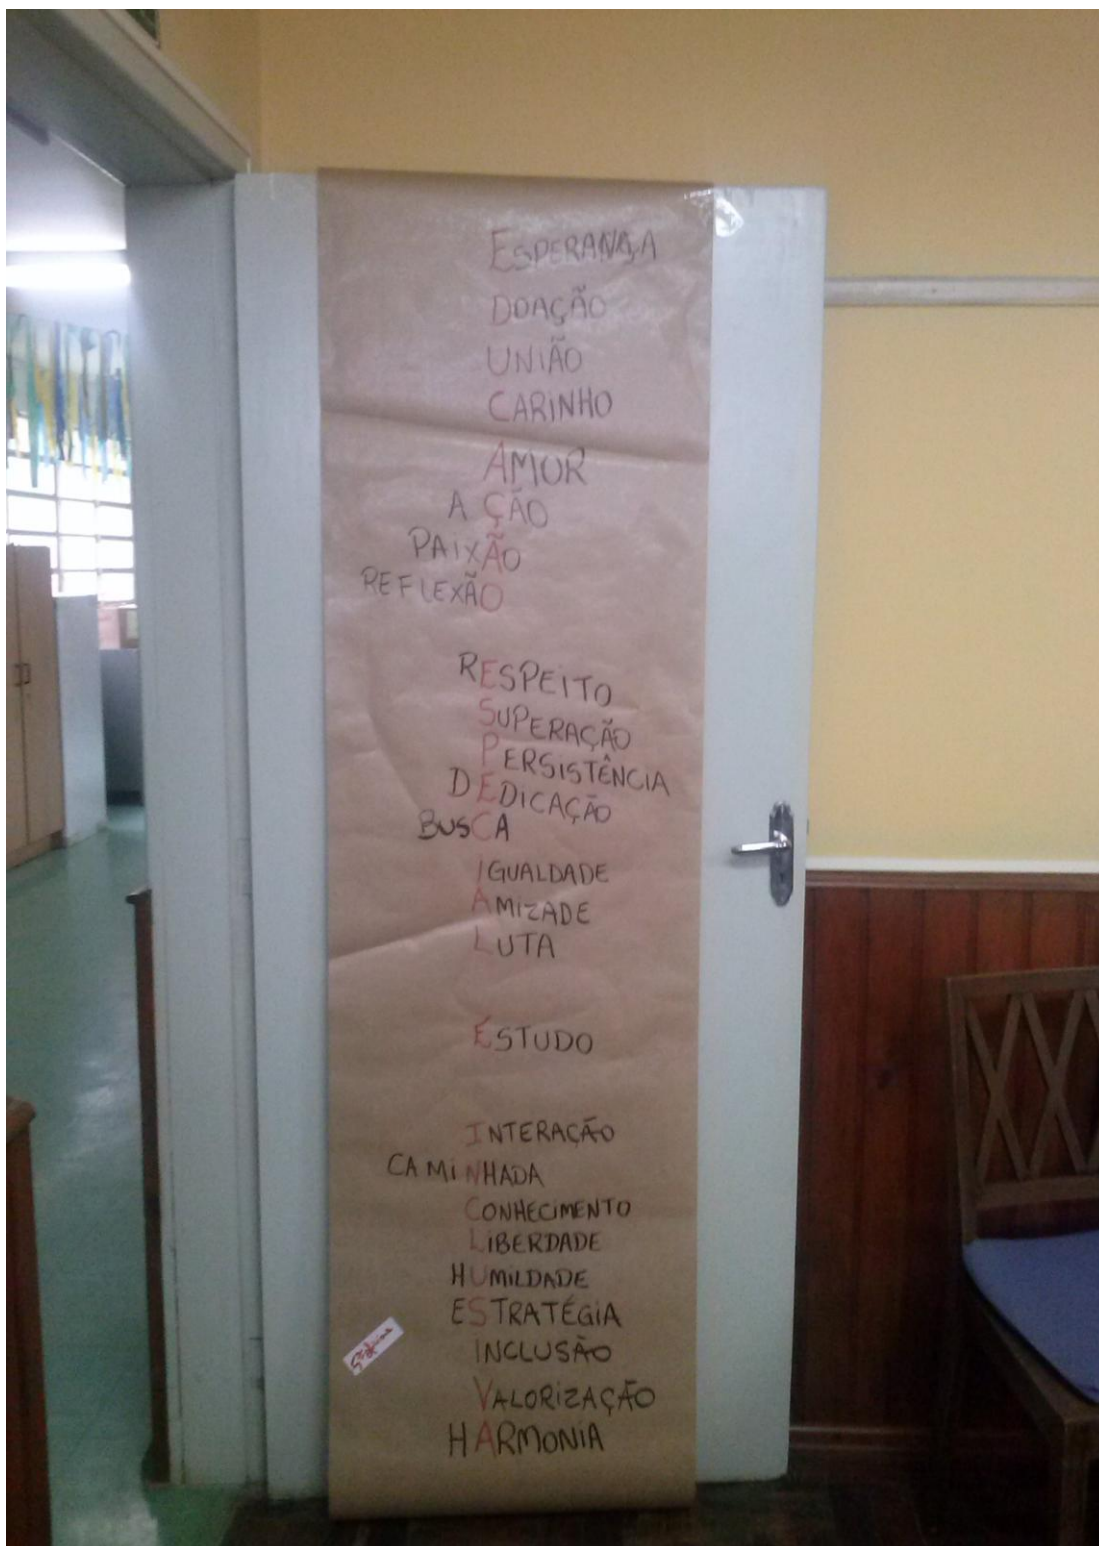 ESPERANÇA
DOAÇÃO
UNIÃO
CARINHO
AMOR
AÇÃO
PAIXÃO
REFLEXÃO
RESPEITO
SUPERAÇÃO
PERSISTÊNCIA
DEDICAÇÃO
BUSCA
IGUALDADE
AMIZADE
LUTA
ÉSTUDO
INTERAÇÃO
CAMINHADA
CONHECIMENTO
LIBERDADE
HUMILDADE
ESTRATÉGIA
INCLUSÃO
VALORIZAÇÃO
HARMONIA